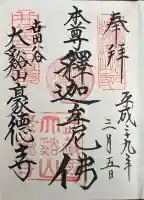 奉拝
平成二十九年
二月五日
本尊釋迦牟尼佛
世田谷
大谿山豪德寺